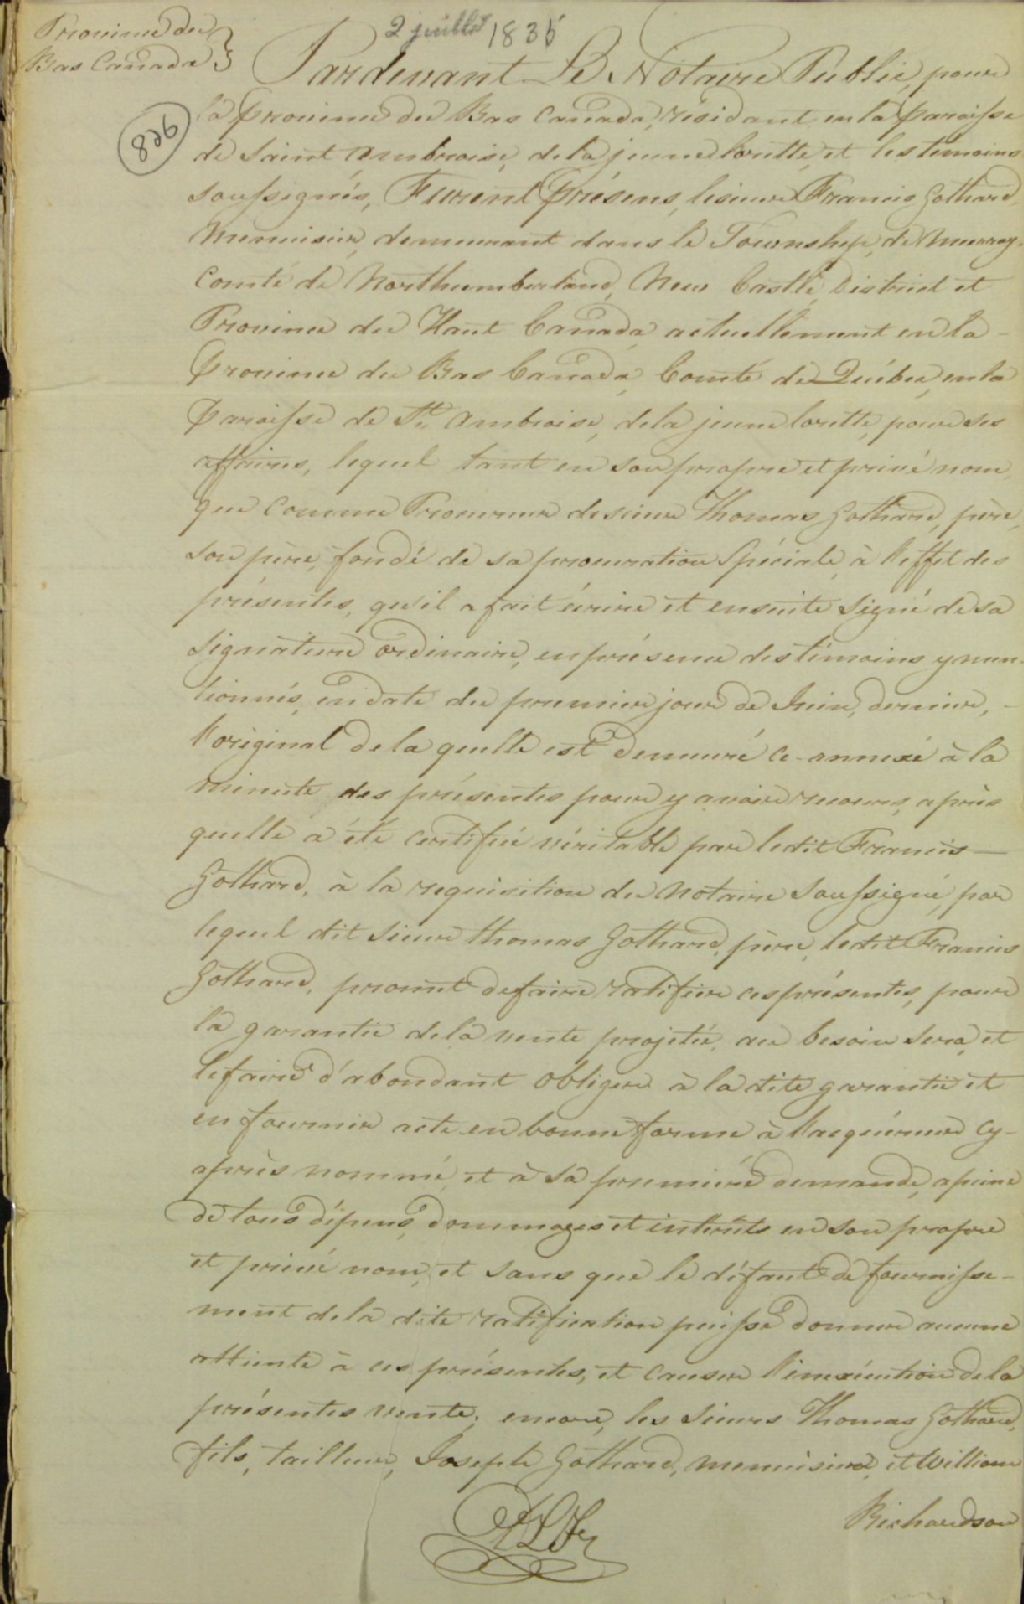 2 juillet 1835
Province du
Bas Canada
826
Pardevant Le Notaire Public, pour
la Province du Bas Canada, résidant en la Paroisse
de Saint Ambroise, de la jeune lorette, et les témoins
soussignés, Furent Présens, lesieur Francis Gothard,
Menuisier, demeurant dans le Township, de Murray,
Comté de Northumberland, New Castle District et
Province du Haut Canada, actuellement en la -
Province du Bas Canada, Comté de Québec, en la
Paroisse de St. Ambroise, de la jeune lorette, pour ses
affaires, lequel tant en son propre et privé nom,
que comme Procureur de sieur Thomas Gothard, père,
son père, fondé de sa procuration Spéciale, à l'effet des
présentes, qu'il a fait écrire et ensuite signé de sa
signature ordinaire, en présence des témoins y men-
tionnés, en date du premier jour de Juin, dernier, -
l'original de la quelle est demeuré ci-annexé à la
minute des présentes pour y avoir recours, après
quelle a été certifié véritable par ledit Francis —
Gothard, à la requisition du Notaire Soussigné, par
lequel dit Sieur Thomas Gothard, père, ledit Francis
Gothard, promet de faire ratifier ces présentes, pour
la garantie de la vente projetée, au besoin sera, et
le faire d'abondant obliger à la dite garantie et
en fournir acte en bonne forme à l'acquéreur cy-
après nommé, et à sa première demande, a peine
de tous dépens, dommages et intérêts en son propre
et privé nom, et sans que le défaut de fournisse-
ment de la dite ratification puisse donner aucune
atteinte à ces présentes, et causer l'inexécution de la
présentes vente; encore, les Sieurs Thomas Gothard,
fils, tailleur, Joseph Gothard, menuisier, et William
Richardson